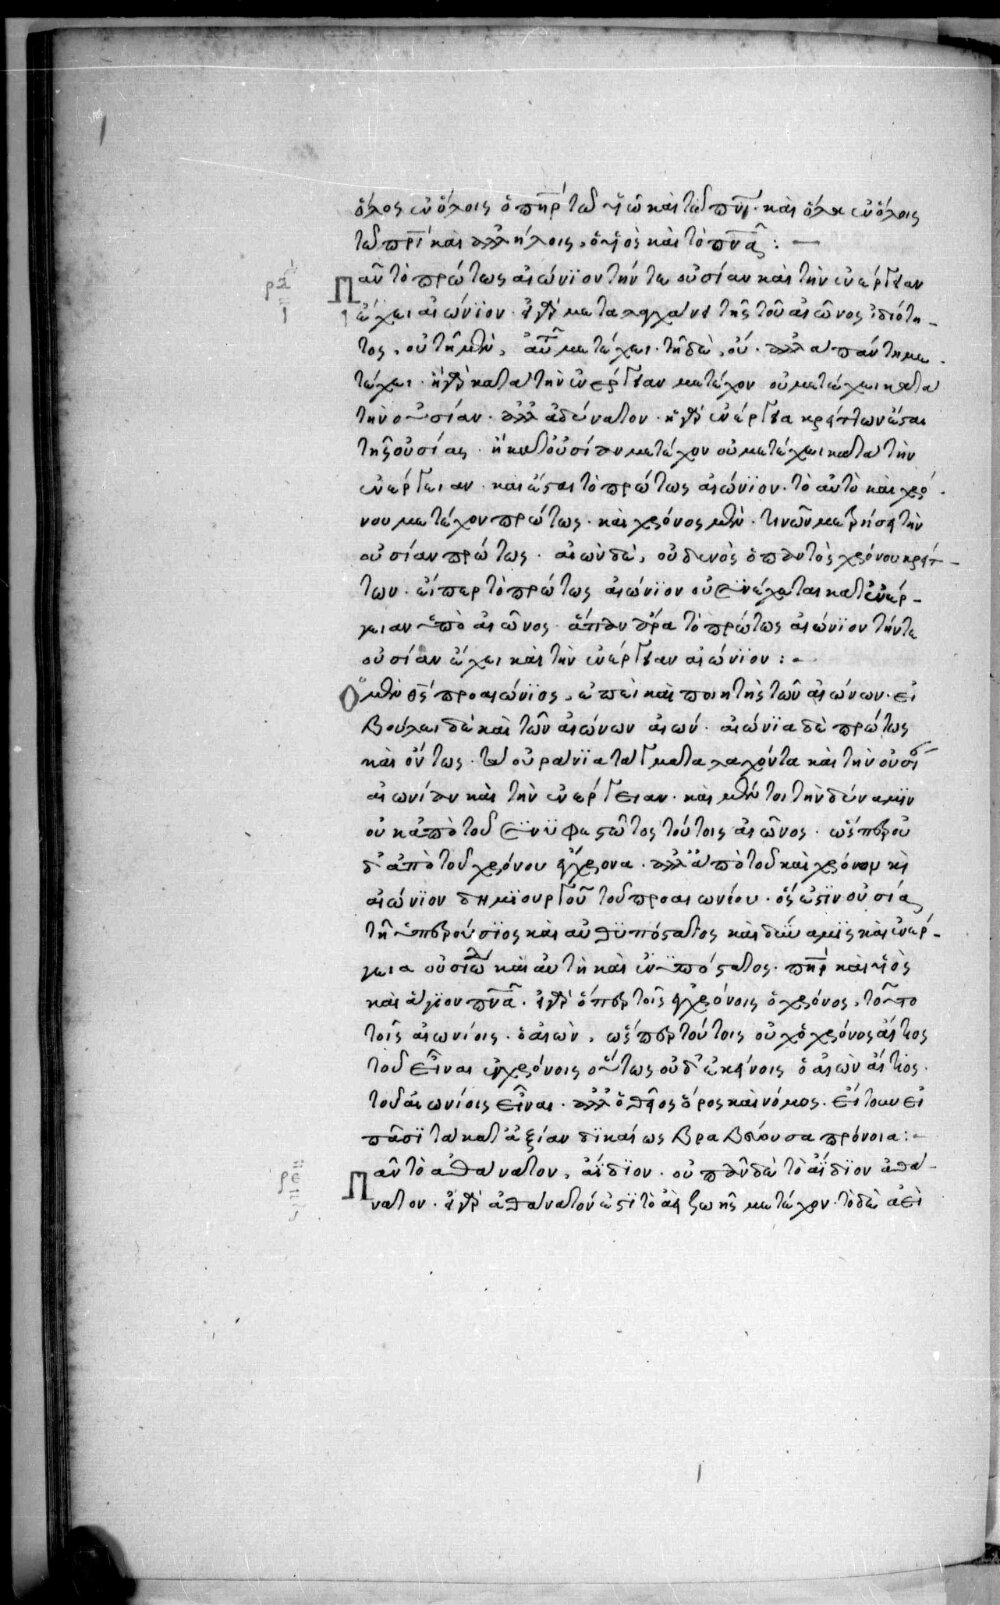 ὅλος ἐν ὅλοις ὁ πηρ τῶ υἱῶ καὶ τῶ πνι· καὶ ὅλα ἐν ὅλοις
τῶ πρι καὶ ἀλλήλοις, ὁ υἱὸς καὶ τὸ πνα:—
ρδ Πᾶν τὸ πρώτως αἰώνιον τήν τε οὐσίαν καὶ τὴν ἐνέργειαν
ἔχει αἰώνιον· εἰ γὰρ μεταλαγχάνει τῆς τοῦ αἰῶνος ἰδιότη-
τος, οὐ τῆ μὲν, αὐτοῦ μετέχει· τῆ δὲ, οὔ· ἀλλὰ πάντη με-
τέχει· ἢ γὰρ κατὰ τὴν ἐνέργειαν μετέχον οὐ μετέχει κατὰ
τὴν οὐσίαν· ἀλλ' ἀδύνατον· ἡ γὰρ ἐνέργεια κρείττων ἔσται
τῆς οὐσίας· ἢ κατ' οὐσίαν μετέχον οὐ μετέχει κατὰ τὴν
ἐνέργειαν· καὶ ἔσται τὸ πρώτως αἰώνιον· τὸ αὐτὸ καὶ χρό-
νου μετέχον πρώτως· καὶ χρόνος μὲν· τινῶν μετρήσει τὴν
οὐσίαν πρώτως· αἰὼν δὲ, οὐδενὸς ὁ παντὸς χρόνου κρείτ-
των· εἴπερ τὸ πρώτως αἰώνιον οὐ συνέχεται κατ' ἐνέρ-
γειαν ὑπὸ αἰῶνος· ἅπαν ἄρα τὸ πρώτως αἰώνιον τήν τε
οὐσίαν ἔχει καὶ τὴν ἐνέργειαν αἰώνιον:-
Ὁ μὲν θς προαιώνιος, ἐπεὶ καὶ ποιητὴς τῶν αἰώνων· εἰ
βούλει δὲ καὶ τῶν αἰώνων αἰών· αἰώνια δὲ πρώτως
καὶ ὄντως· τὰ οὐράνια τάγματα λαχόντα καὶ τὴν οὐσί
αἰωνίαν καὶ τὴν ἐνέργειαν· καὶ μέν τοι τὴν δύναμιν
οὐκ ἀπὸ τοῦ συνυφεστῶτος τούτοις αἰῶνος· ὥσπερ οὐ
δ' ἀπὸ τοῦ χρόνου ἔγχρονα· ἀλλ' ἀπὸ τοῦ καὶ χρόνον καὶ
αἰώνιον δημιουργοῦ τοῦ προαιωνίου· ὅς ἐστιν οὐσία
τῆ ὑπερούσιος καὶ αὐθυπόστατος καὶ δύναμις καὶ ἐνέρ-
γεια οὐσιώ καὶ αὐτὴ καὶ ἐνυπόστατος· πηρ καὶ υἱὸς
καὶ ἅγιον πνα· εἰ γὰρ ὅπερ τοῖς ἐγχρόνοις ὁ χρόνος, τοῦτο
τοῖς αἰωνίοις· ὁ αἰὼν, ὥσπερ τούτοις οὐχ ὁ χρόνος αἴτιος
τοῦ εἶναι ἐγχρόνοις οὕτως οὐδ' ἐκείνοις ὁ αἰὼν αἴτιος·
τοῦ αἰωνίοις εἶναι· ἀλλ' ὁ θεῖος ὅρος καὶ νόμος· εἴτουν εἰ
πᾶσι τὰ κατ' ἀξίαν δικαίως βραβεύουσα πρόνοια:-
ρε Πᾶν τὸ ἀθάνατον, ἀΐδιον· οὐ πᾶν δὲ τὸ ἀΐδιον ἀθά-
νατον· εἰ γὰρ ἀθάνατόν ἐστι τὸ ἀεὶ ζωῆς μετέχον· τὸ δὲ ἀεὶ